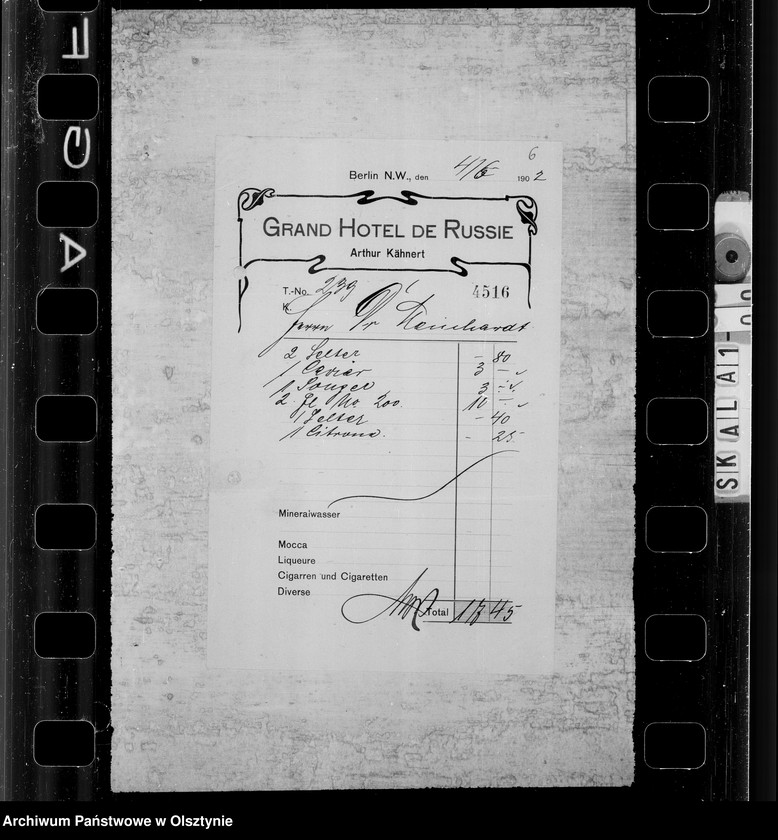 AGF
6
Berlin N.W., den 4/6 1902
GRAND HOTEL DE RUSSIE
Arthur Kähnert
T.-No. 239
4516
K.
Herrn Dr Reinhardt
2 Selter - 80
1 Caviar 3 -
1 3 -
2 Fl. No. 200 10 -
1 Selter - 40
1 Citrone. - 25
Mineralwasser
Mocca
Liqueure
Cigarren und Cigaretten
Diverse
Total 17 45
SKALA 1
Archiwum Państwowe w Olsztynie